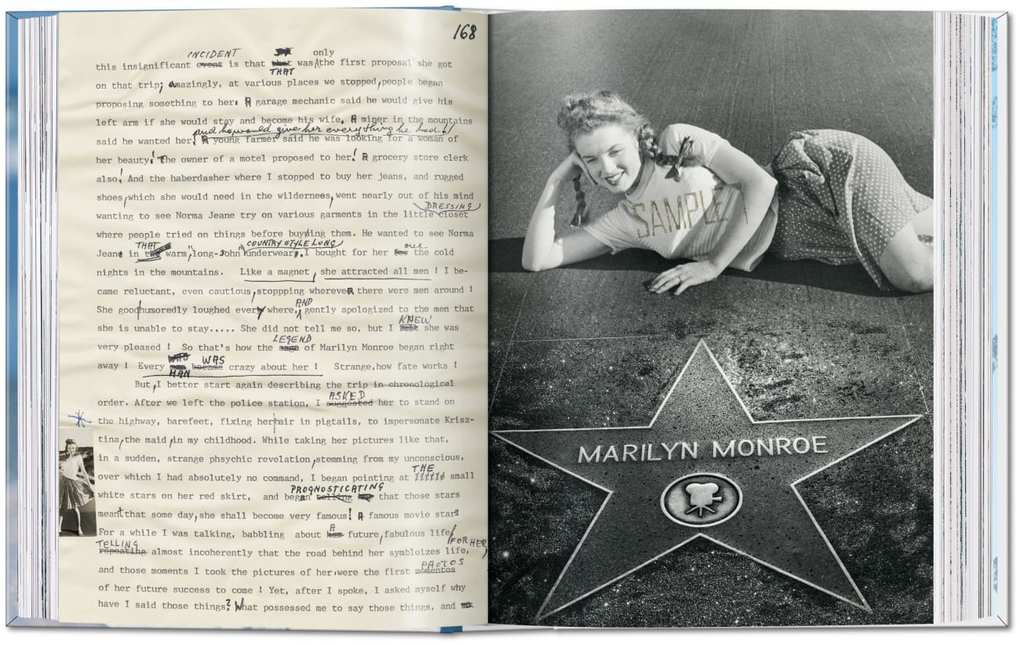 168
INCIDENT only
this insignificant event is that was the first proposal she got
THAT
on that trip; amazingly, at various places we stopped, people began
proposing something to her. A garage mechanic said he would give his
left arm if she would stay and become his wife. A miner in the mountains
and he would give her everything he had!
said he wanted her. A young farmer said he was looking for a woman of
her beauty! The owner of a motel proposed to her! A grocery store clerk
also! And the haberdasher where I stopped to buy her jeans, and rugged
shoes, which she would need in the wilderness, went nearly out of his mind
DRESSING
wanting to see Norma Jeane try on various garments in the little closet
where people tried on things before buying them. He wanted to see Norma
THAT COUNTRY STYLE LONG
Jeane in warm, long-John underwear, I bought for her for the cold
nights in the mountains. Like a magnet, she attracted all men ! I be-
came reluctant, even cautious, stoppping wherever there were men around !
AND
She goodhumoredly laughed every where, gently apologized to the men that
KNEW
she is unable to stay..... She did not tell me so, but I she was
LEGEND
very pleased ! So that's how the of Marilyn Monroe began right
WAS
away ! Every crazy about her ! Strange, how fate works !
MAN
But, I better start again describing the trip in chronological
ASKED
order. After we left the police station, I suggested her to stand on
the highway, barefeet, fixing her hair in pigtails, to impersonate Krisz-
tina, the maid in my childhood. While taking her pictures like that,
in a sudden, strange phsychic revelation, stemming from my unconscious,
THE
over which I had absolutely no command, I began pointing at small
PROGNOSTICATING
white stars on her red skirt, and began telling that those stars
meant that some day, she shall become very famous! A famous movie star!
A
For a while I was talking, babbling about her future, fabulous life,
TELLING (FOR HER)
repeating almost incoherently that the road behind her symbloizes life,
PHOTOS
and those moments I took the pictures of her, were the first momentos
of her future success to come ! Yet, after I spoke, I asked myself why
have I said those things? What possessed me to say those things, and
SAMPLE
MARILYN MONROE